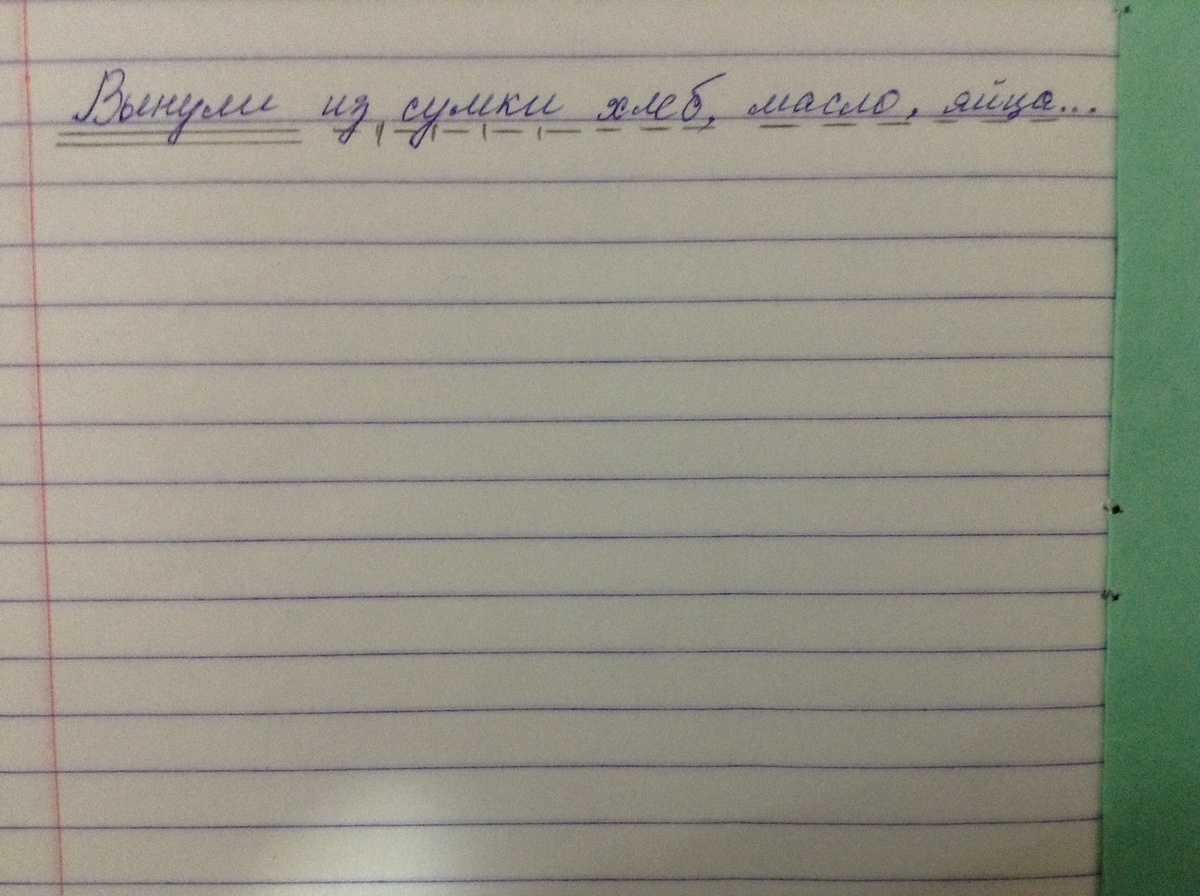 Вынули из сумки хлеб, масло, яйца...